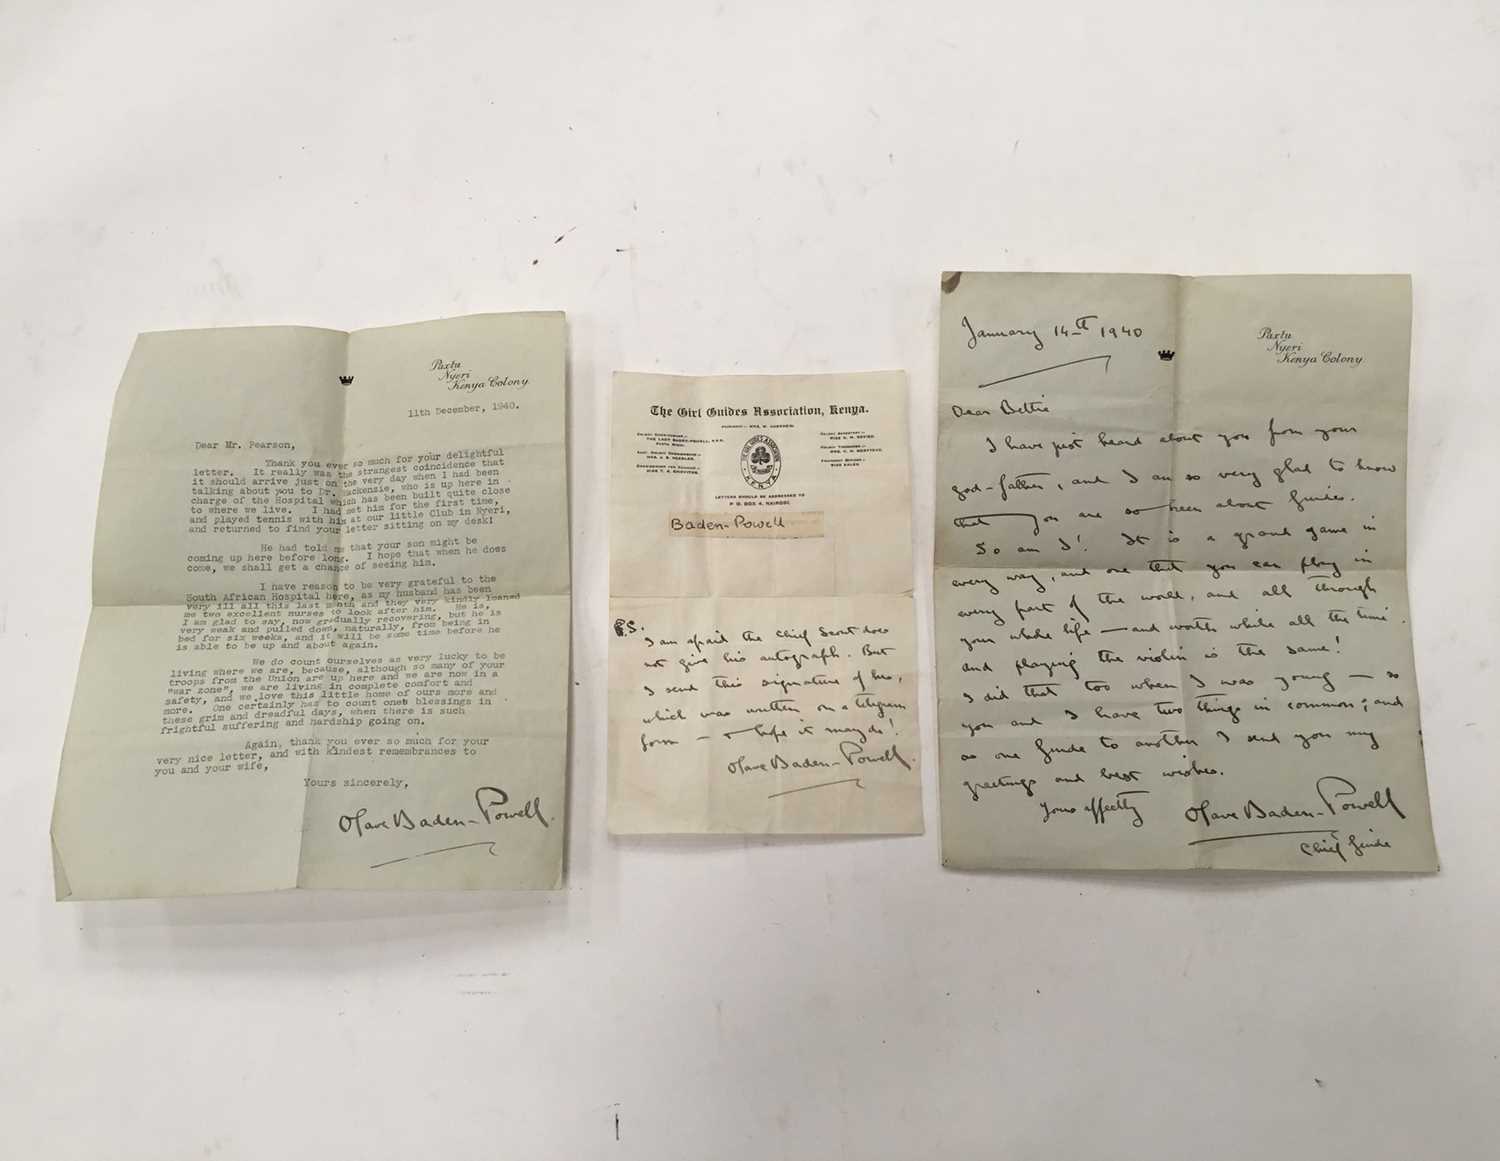 Paxtu
Nyeri
Kenya Colony
11th December, 1940.
Dear Mr. Pearson,
Thank you ever so much for your delightful
letter. It really was the strangest coincidence that
it should arrive just on the very day when I had been
talking about you to Dr. Mackenzie, who is up here in
charge of the Hospital which has been built quite close
to where we live. I had met him for the first time,
and played tennis with him at our little Club in Nyeri,
and returned to find your letter sitting on my desk!
He had told me that your son might be
coming up here before long. I hope that when he does
come, we shall get a chance of seeing him.
I have reason to be very grateful to the
South African Hospital here, as my husband has been
very ill all this last month and they very kindly loaned
me two excellent nurses to look after him. He is,
I am glad to say, now gradually recovering, but he is
very weak and pulled down, naturally, from being in
bed for six weeks, and it will be some time before he
is able to be up and about again.
We do count ourselves as very lucky to be
living where we are, because, although so many of your
troops from the Union are up here and we are now in a
"war zone", we are living in complete comfort and
safety, and we love this little home of ours more and
more. One certainly has to count ones blessings in
these grim and dreadful days, when there is such
frightful suffering and hardship going on.
Again, thank you ever so much for your
very nice letter, and with kindest remembrances to
you and your wife,
Yours sincerely,
Olave Baden-Powell.
The Girl Guides Association, Kenya.
THE GIRL GUIDES ASSOCIATION
KENYA
LETTERS SHOULD BE ADDRESSED TO
P. O. BOX 4, NAIROBI.
Baden-Powell
P.S.
I am afraid the Chief Scout does
not give his autograph. But
I send this signature of his,
which was written on a telegram
form – I hope it may do!
Olave Baden-Powell.
January 14th 1940
Paxtu
Nyeri
Kenya Colony
Dear Bettie
I have just heard about you from your
god-father, and I am so very glad to know
that you are so keen about Guides.
So am I! It is a grand game in
every way, and one that you can play in
every part of the world, and all through
your whole life – and worth while all the time.
and playing the violin is the same!
I did that too when I was young – so
you and I have two things in common; and
as one Guide to another I send you my
greetings and best wishes.
Yours affectly
Olave Baden-Powell
Chief Guide